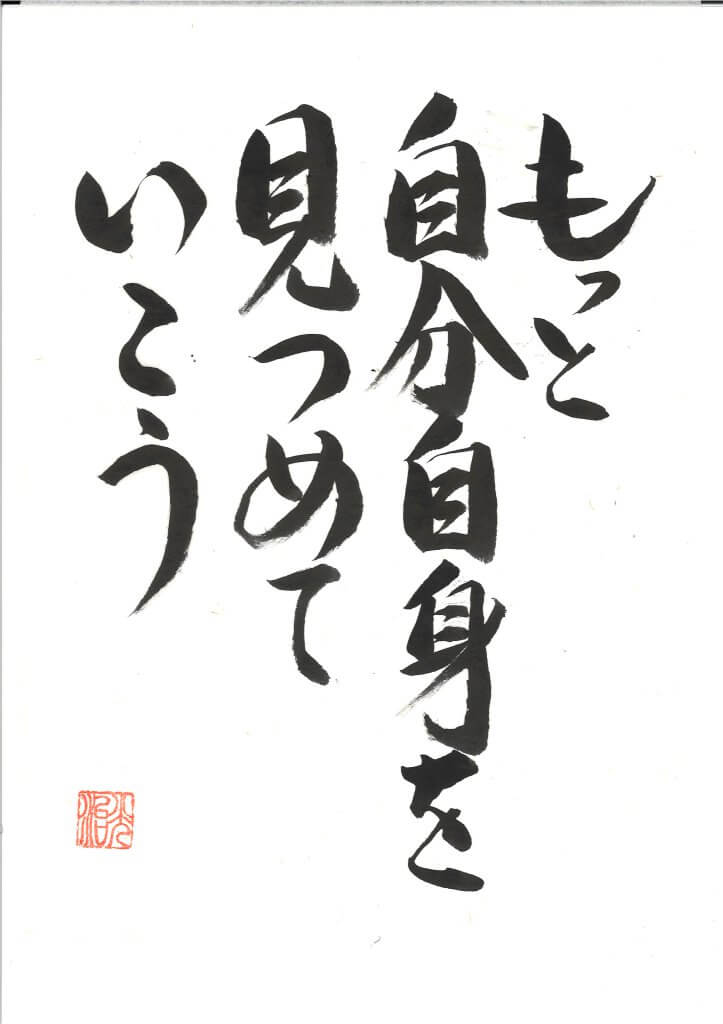 もっと
自分自身を
見つめて
いこう